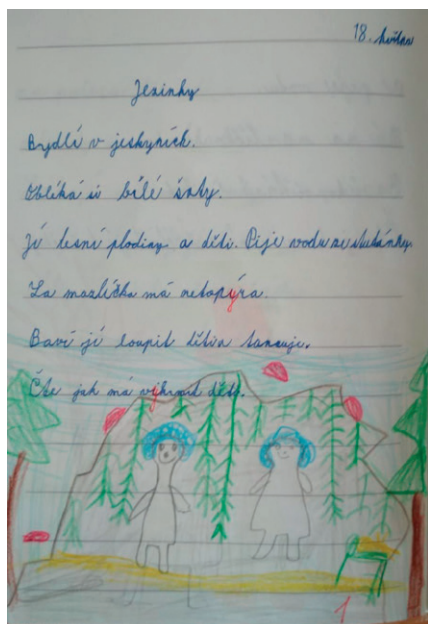 18. květen
Jezinky
Bydlí v jeskyních.
Obléká si bílé šaty.
Jí lesní plodiny a děti. Pije vodu ze studánky.
Za mazlíčka má netopýra.
Baví jí loupit děti a tancuje.
Čte jak má výkrmit děti.
1